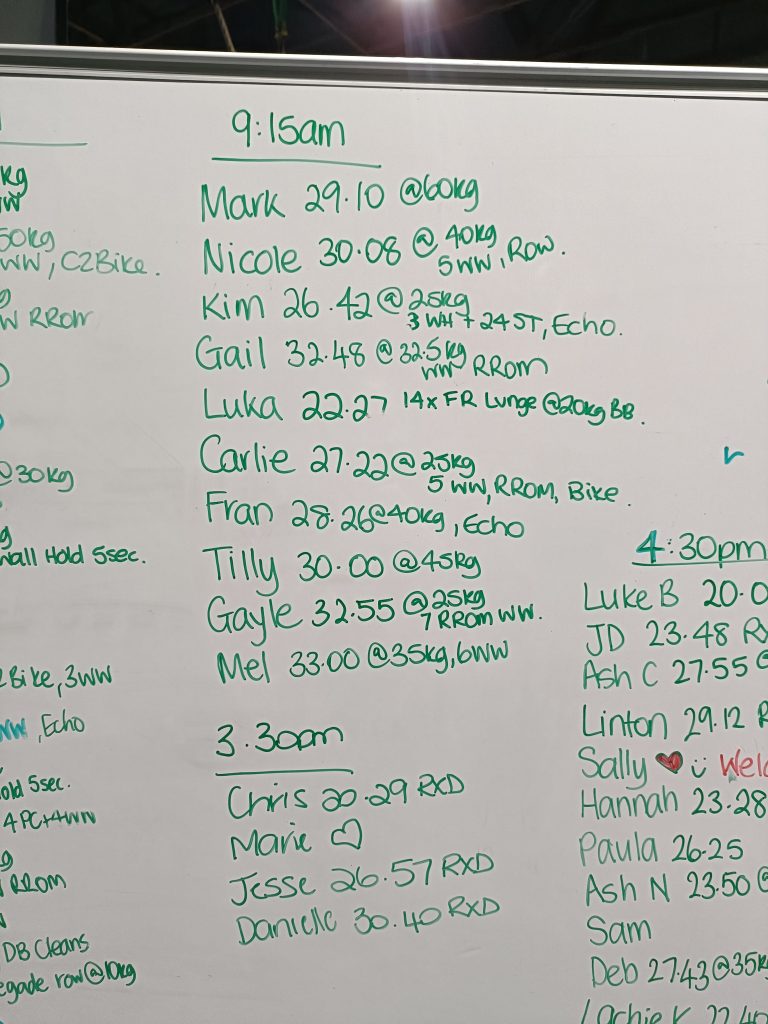 kg
50kg
WW, C2Bike.
RROM
@30kg
Wall Hold 5sec.
Bike, 3WW
WW, Echo
Hold 5sec.
4PC+4WW
RROM
DB Cleans
row@10kg
9:15am
Mark 29.10 @60kg
Nicole 30.08 @ 40kg
5WW, Row.
Kim 26.42 @25kg
3 WH + 24 ST, Echo.
Gail 32.48 @32.5kg
WW RROM
Luka 22.27 14x FR Lunge @20kg BB.
Carlie 27.22 @25kg
5 WW, RROM, Bike.
Fran 28.26@40kg, Echo
Tilly 30.00 @45kg
Gayle 32.55 @25kg
7 RROM WW.
Mel 33.00 @35kg, 6WW
3.30pm
Chris 20.29 RXD
Marie ♡
Jesse 26.57 RXD
Danielle 30.40 RXD
4:30pm
Luke B 20.0
JD 23.48 RX
Ash C 27.55 @
Linton 29.12 R
Sally ❤ ü Welc
Hannah 23.28
Paula 26.25
Ash N 23.50 @
Sam
Deb 27.43 @35k
Lachie K 22.40